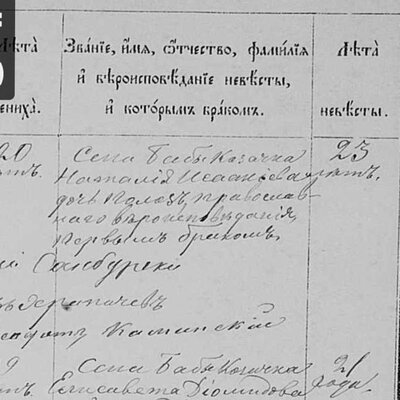 Лѣта
Званіе, имя, отчество, фамилія
Лѣта
и вѣроисповѣданіе невѣсты,
жениха.
и которымъ бракомъ.
невѣсты.
20
Села Бабы Казачка
23
Наталія Исаакова
лѣтъ.
дочь Полозъ, православ-
наго вѣроисповѣданія,
первымъ бракомъ,
Самбурски
Каминскій
Села Бабы Козачка
21
Елисавета Діомидова
года